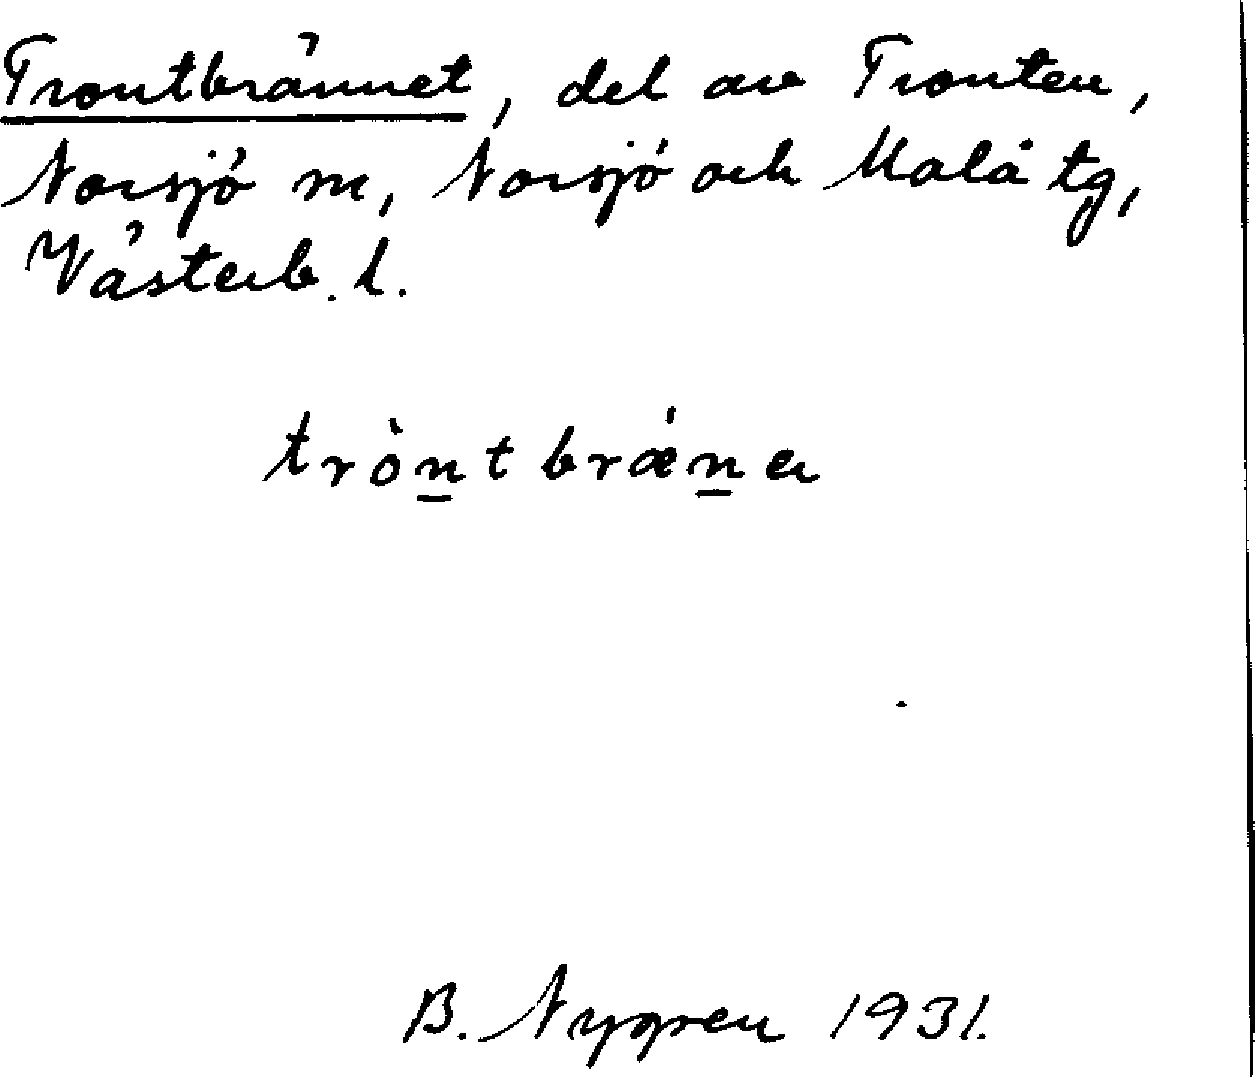 Trontbrännet, del av Tronten,
Norsjö m, Norsjö och Malå tg,
Västerb. l.
trònt bræ̀na
B. Nygren 1931.